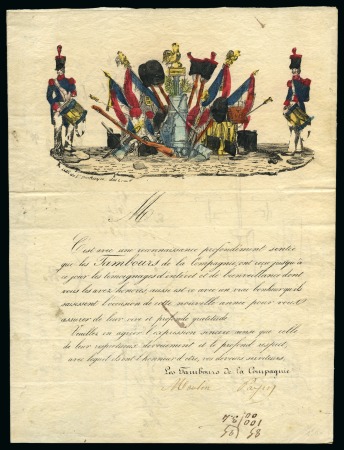 M
C'est avec une reconnaissance profondément sentie
que les Tambours de la Compagnie, ont reçu jusqu'à
ce jour les témoignages d'intérêt et de bienveillance dont
vous les avez honorés aussi est-ce avec un vrai bonheur qu'ils
saisissent l'occasion de cette nouvelle année pour vous
assurer de leur vive et profonde gratitude.
Veuillez en agréer l'expression sincère ainsi que celle
de leur respectueux dévouement et le profond respect,
avec lequel ils ont l'honneur d'être, vos dévoués serviteurs,
Les Tambours de la Compagnie